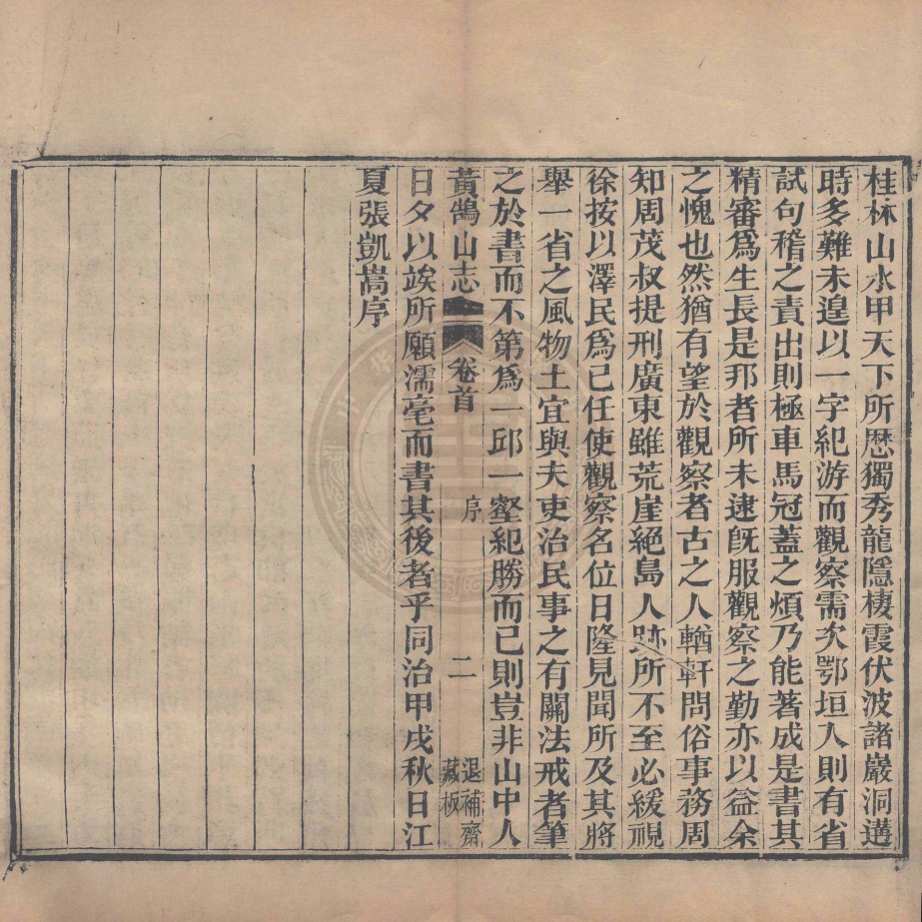 桂林山水甲天下所歷獨秀龍隱棲霞伏波諸巖洞遘
時多難未遑以一字紀游而觀察需次鄂垣入則有省
試句稽之責出則極車馬冠蓋之煩乃能著成是書其
精審爲生長是邦者所未逮旣服觀察之勤亦以益余
之愧也然猶有望於觀察者古之人輶軒問俗事務周
知周茂叔提刑廣東雖荒崖絕島人跡所不至必緩視
徐按以澤民爲己任使觀察名位日隆見聞所及其將
舉一省之風物土宜與夫吏治民事之有關法戒者筆
之於書而不第爲一邱一壑紀勝而已則豈非山中人
黃鵠山志 卷首 序 二 退補齋藏板
日夕以竢所願濡毫而書其後者乎同治甲戌秋日江
夏張凱嵩序